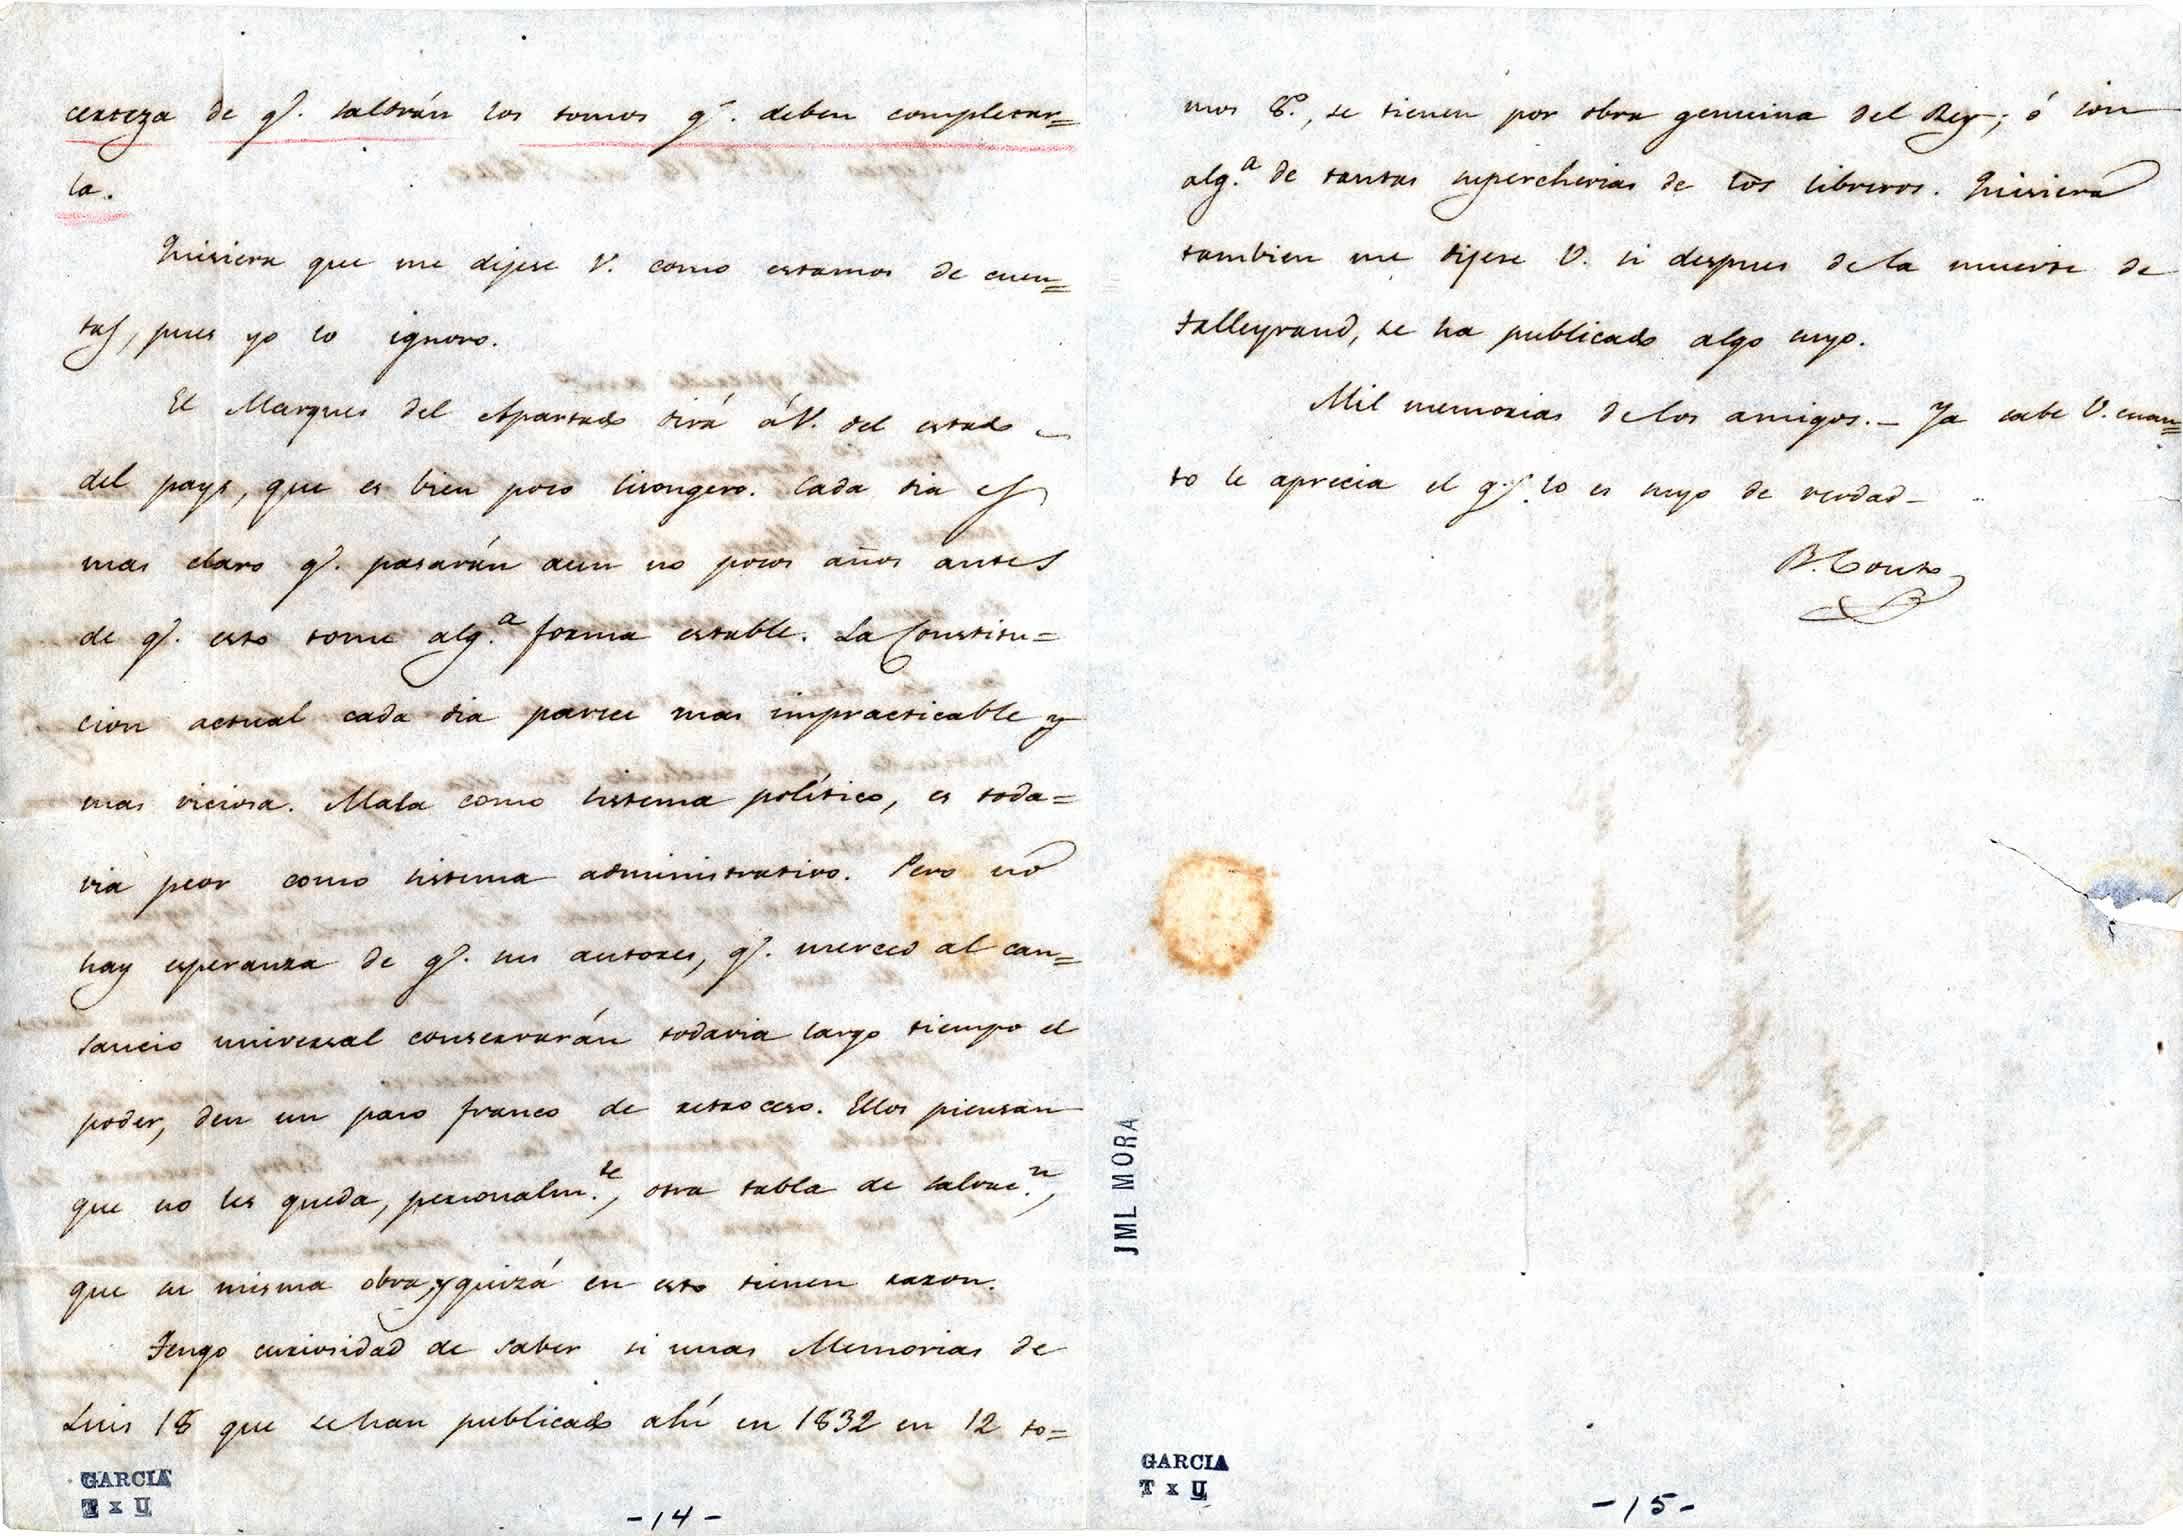 certeza de q.e saldrán los tomos q.e deben completar=
la.
Quisiera que me dijese V. como estamos de cuen=
tas, pues yo lo ignoro.
El Marques del Apartado dirá á V. del estado
del pays, que es bien poco lisongero. Cada dia es
mas claro q.e pasarán aun no pocos años antes
de q.e esto tome alg.a forma estable. La Constitu=
cion actual cada dia parece mas impracticable y
mas viciosa. Mala como sistema político, es toda=
via peor como sistema administrativo. Pero no
hay esperanza de q.e sus autores, q.e merced al can=
sancio universal conservarán todavia largo tiempo el
poder, den un paso franco de retroceso. Ellos piensan
que no les queda, personalm.te, otra tabla de salvac.n,
que su misma obra, y quizá en esto tienen razon.
Tengo curiosidad de saber si unas Memorias de
Luis 18 que se han publicado ahí en 1832 en 12 to=
GARCIA
T x U
-14-
mos 8.o, se tienen por obra genuina del Rey; ó son
alg.a de tantas supercherias de los libreros. Quisiera
tambien me dijese V. si despues de la muerte de
Talleyrand, se ha publicado algo suyo.
Mil memorias de los amigos.- Ya sabe V. cuan=
to le aprecia el q.e lo es suyo de verdad-
B. Couto
JML MORA
GARCIA
T x U
-15-